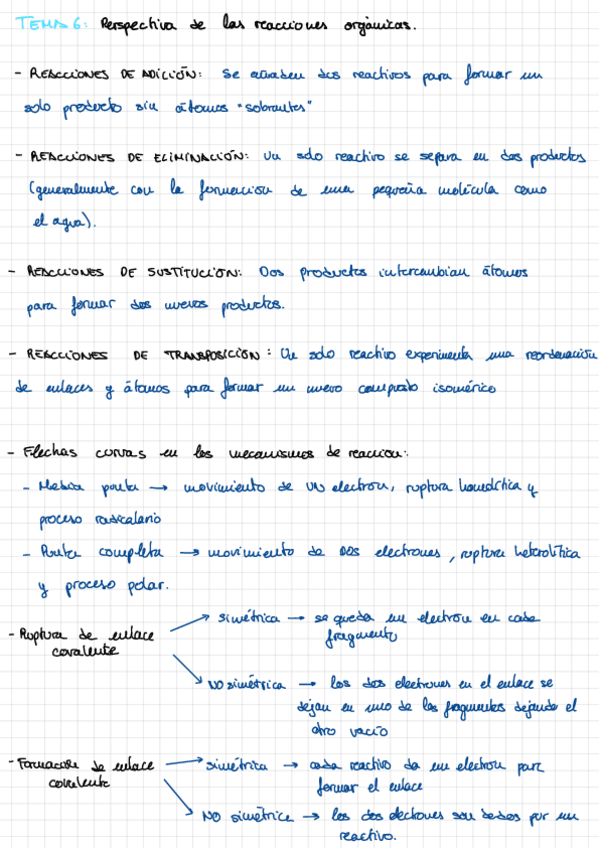 TEMA 6: Perspectiva de las reacciones orgánicas.
- REACCIONES DE ADICIÓN: Se añaden dos reactivos para formar un
solo producto sin átomos "sobrantes"
- REACCIONES DE ELIMINACIÓN: Un solo reactivo se separa en dos productos
(generalmente con la formación de una pequeña molécula como
el agua).
- REACCIONES DE SUSTITUCIÓN: Dos productos intercambian átomos
para formar dos nuevos productos.
- REACCIONES DE TRANSPOSICIÓN: Un solo reactivo experimenta una reordenación
de enlaces y átomos para formar un nuevo compuesto isomérico
- Flechas curvas en los mecanismos de reacción:
- Media punta → movimiento de UN electrón, ruptura homolítica y
proceso radicalario
- Punta completa → movimiento de DOS electrones, ruptura heterolítica
y proceso polar.
- Ruptura de enlace covalente
simétrica → se queda un electrón en cada
fragmento
NO simétrica → los dos electrones en el enlace se
dejan en uno de los fragmentos dejando el
otro vacío
- Formación de enlace covalente
simétrica → cada reactivo da un electrón para
formar el enlace
NO simétrica → los dos electrones son dados por un
reactivo.